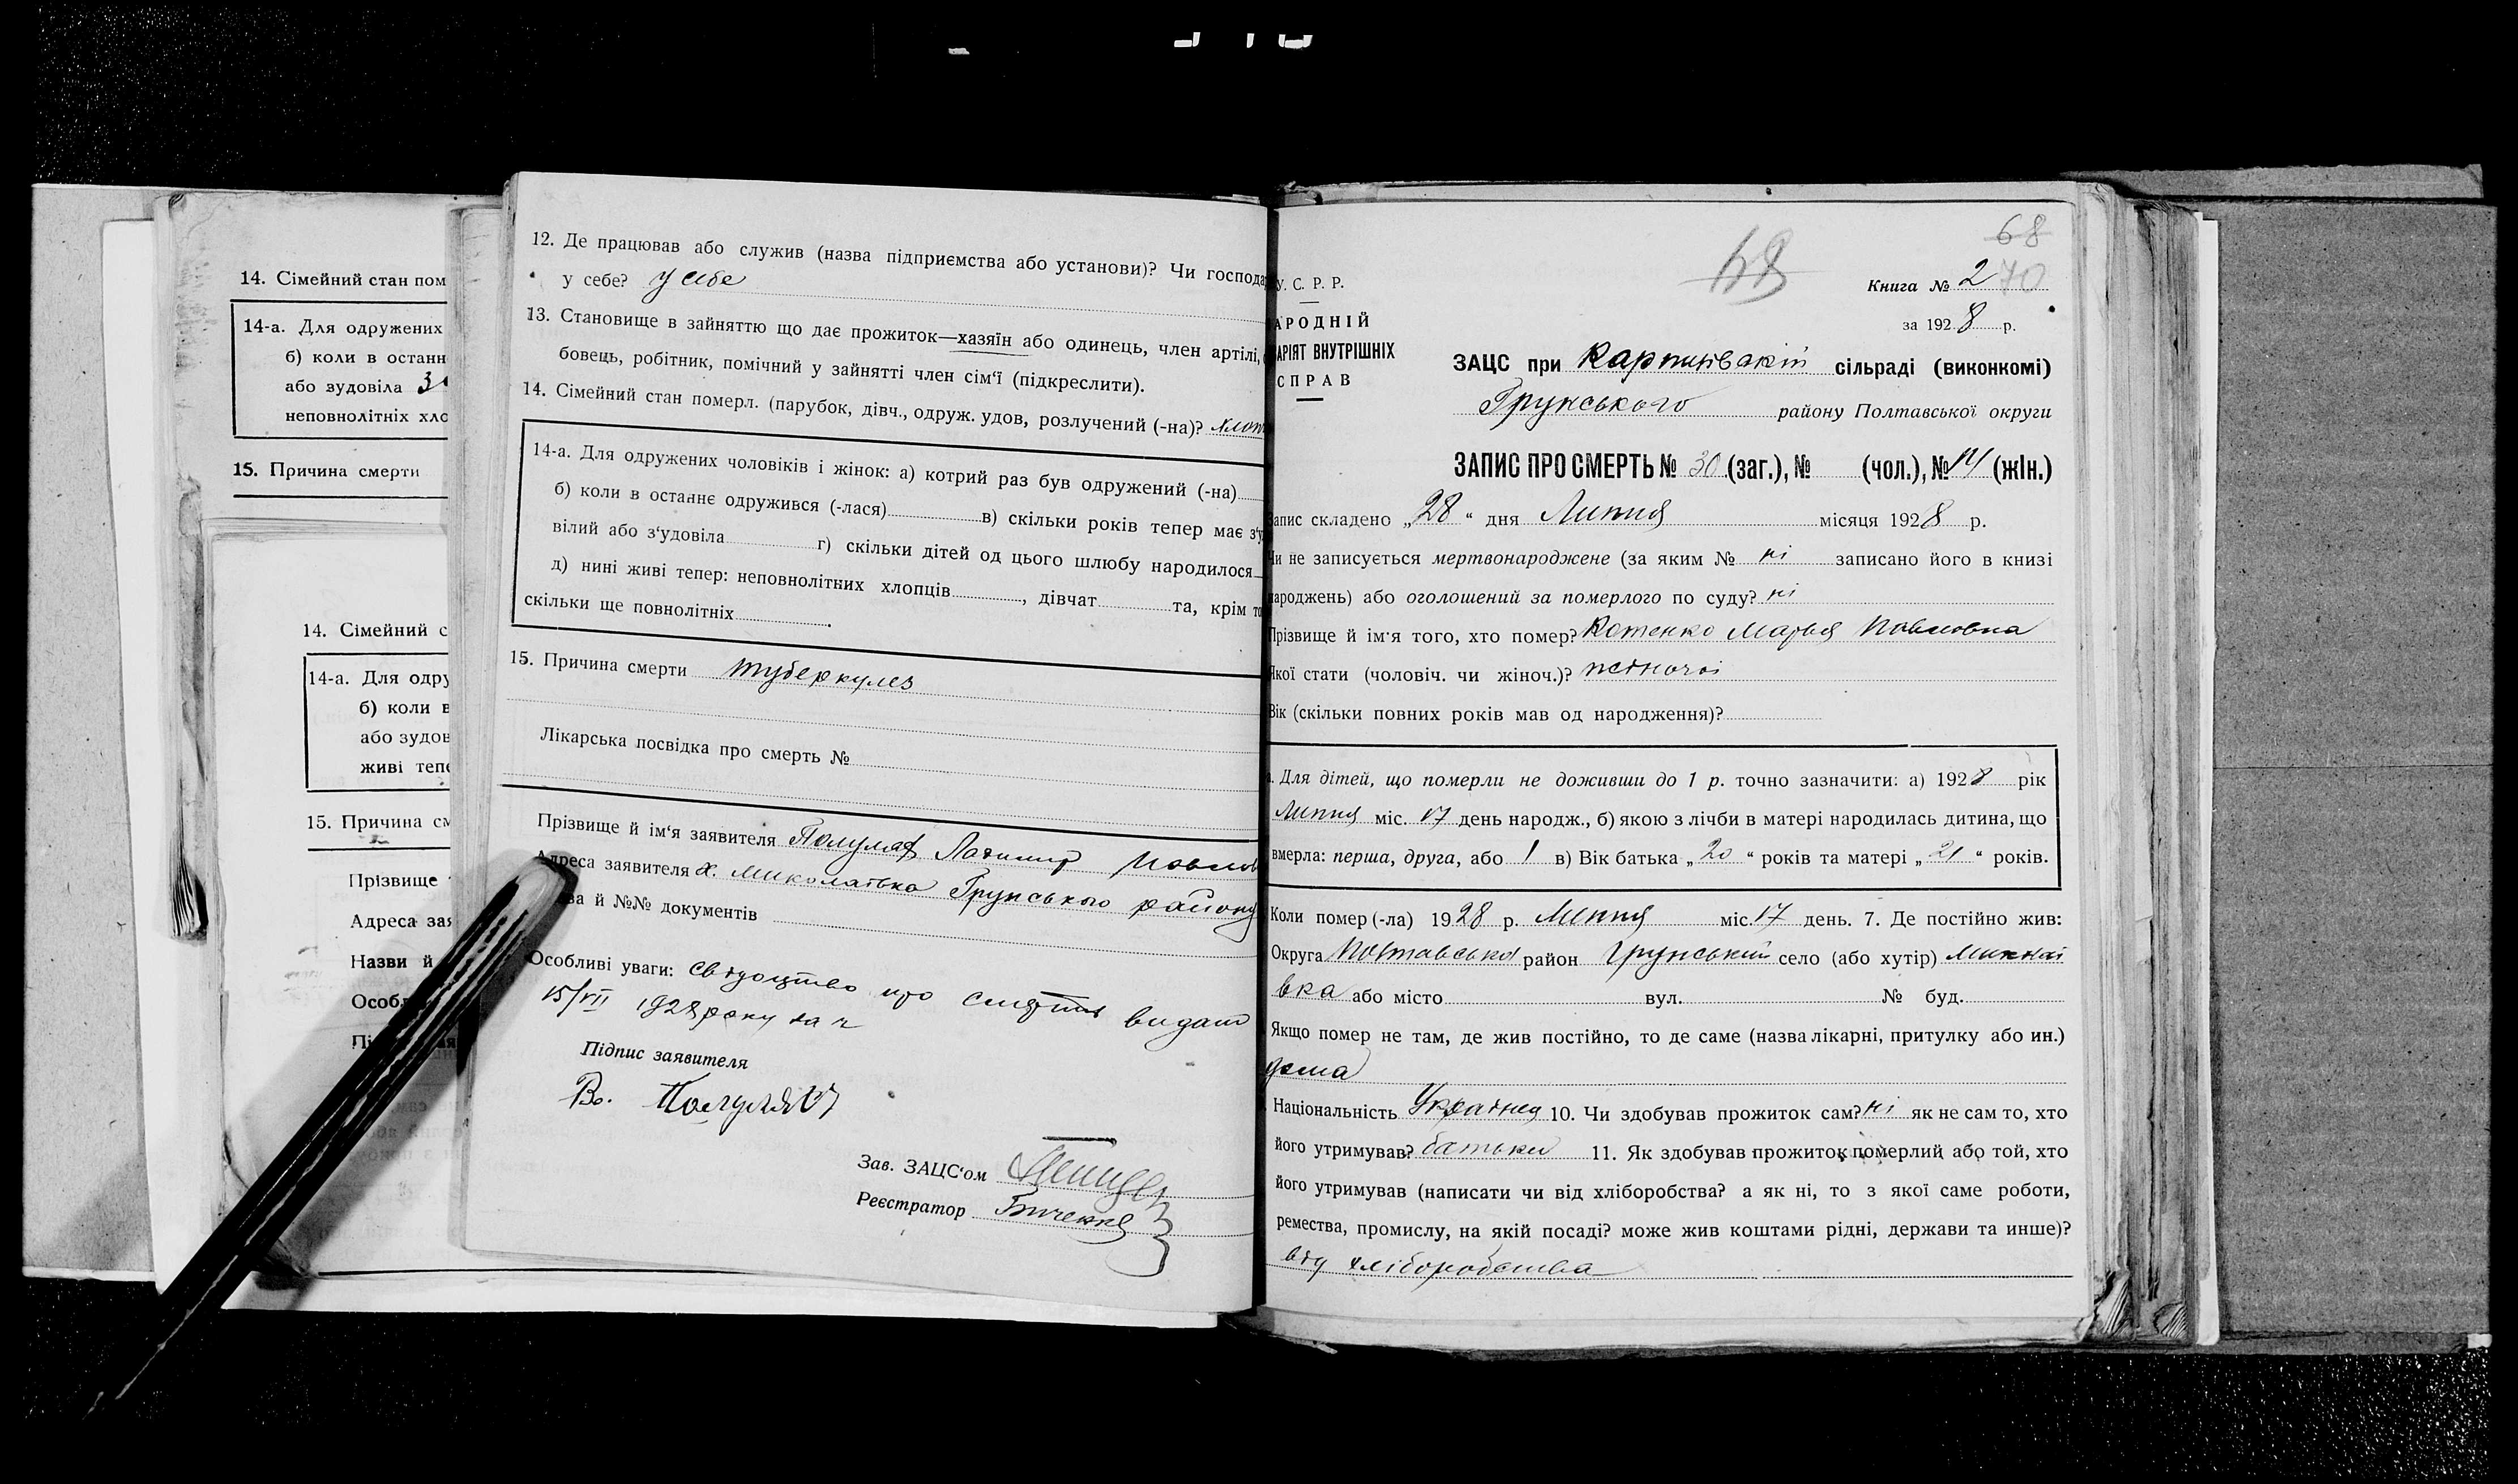 14. Сімейний стан пом
14-а. Для одружених
б) коли в останн
або зудовіла
неповнолітніх хло
15. Причина смерти
14. Сімейний с
14-а. Для одру
б) коли в
або зудов
живі тепе
15. Причина см
Прізвище
Адреса зая
Назви й
Особл
12. Де працював або служив (назва підприємства або установи)? Чи господа
у себе? у себе
13. Становище в зайняттю що дає прожиток—хазяїн або одинець, член артілі,
бовець, робітник, помічний у зайнятті член сім'ї (підкреслити).
14. Сімейний стан померл. (парубок, дівч., одруж. удов, розлучений (-на)? хлоп
14-а. Для одружених чоловіків і жінок: а) котрий раз був одружений (-на)
б) коли в останнє одружився (-лася) в) скільки років тепер має з'у
вілий або з'удовіла г) скільки дітей од цього шлюбу народилося
д) нині живі тепер: неповнолітних хлопців , дівчат та, крім то
скільки ще повнолітніх .
15. Причина смерти туберкулез
Лікарська посвідка про смерть №
Прізвище й ім'я заявителя
Адреса заявителя х. Миколаївка Грунського району
ва й №№ документів
Особливі уваги: свідоцтво про смерть видано
15/VII 1928 року за
Підпис заявителя
Зав. ЗАЦС'ом
Реєстратор
68
Книга № 2 70
У. С. Р. Р.
АРОДНІЙ
АРІЯТ ВНУТРІШНІХ
СПРАВ
за 1928 р.
ЗАЦС при сільраді (виконкомі)
Грунського району Полтавської округи
ЗАПИС ПРО СМЕРТЬ № 30 (заг.), № (чол.), № 14 (жін.)
Запис складено „28" дня Липня місяця 1928 р.
Чи не записується мертвонароджене (за яким № ні записано його в книзі
народжень) або оголошений за померлого по суду? ні
Прізвище й ім'я того, хто помер? Котенко Марья Павловна
Якої стати (чоловіч. чи жіноч.)? жіночої
Вік (скільки повних років мав од народження)?
Для дітей, що померли не доживши до 1 р. точно зазначити: а) 1928 рік
Липня міс. 17 день народж., б) якою з лічби в матері народилась дитина, що
вмерла: перша, друга, або 1 в) Вік батька „20" років та матері „21" років.
Коли помер (-ла) 1928 р. Липня міс. 17 день. 7. Де постійно жив:
Округа Полтавська район Грунський село (або хутір) Миколаї
вка або місто вул. № буд.
Якщо помер не там, де жив постійно, то де саме (назва лікарні, притулку або ин.)
дома
Національність 10. Чи здобував прожиток сам? ні як не сам то, хто
його утримував? батьки 11. Як здобував прожиток померлий або той, хто
його утримував (написати чи від хліборобства? а як ні, то з якої саме роботи,
ремества, промислу, на якій посаді? може жив коштами рідні, держави та инше)?
від хліборобства